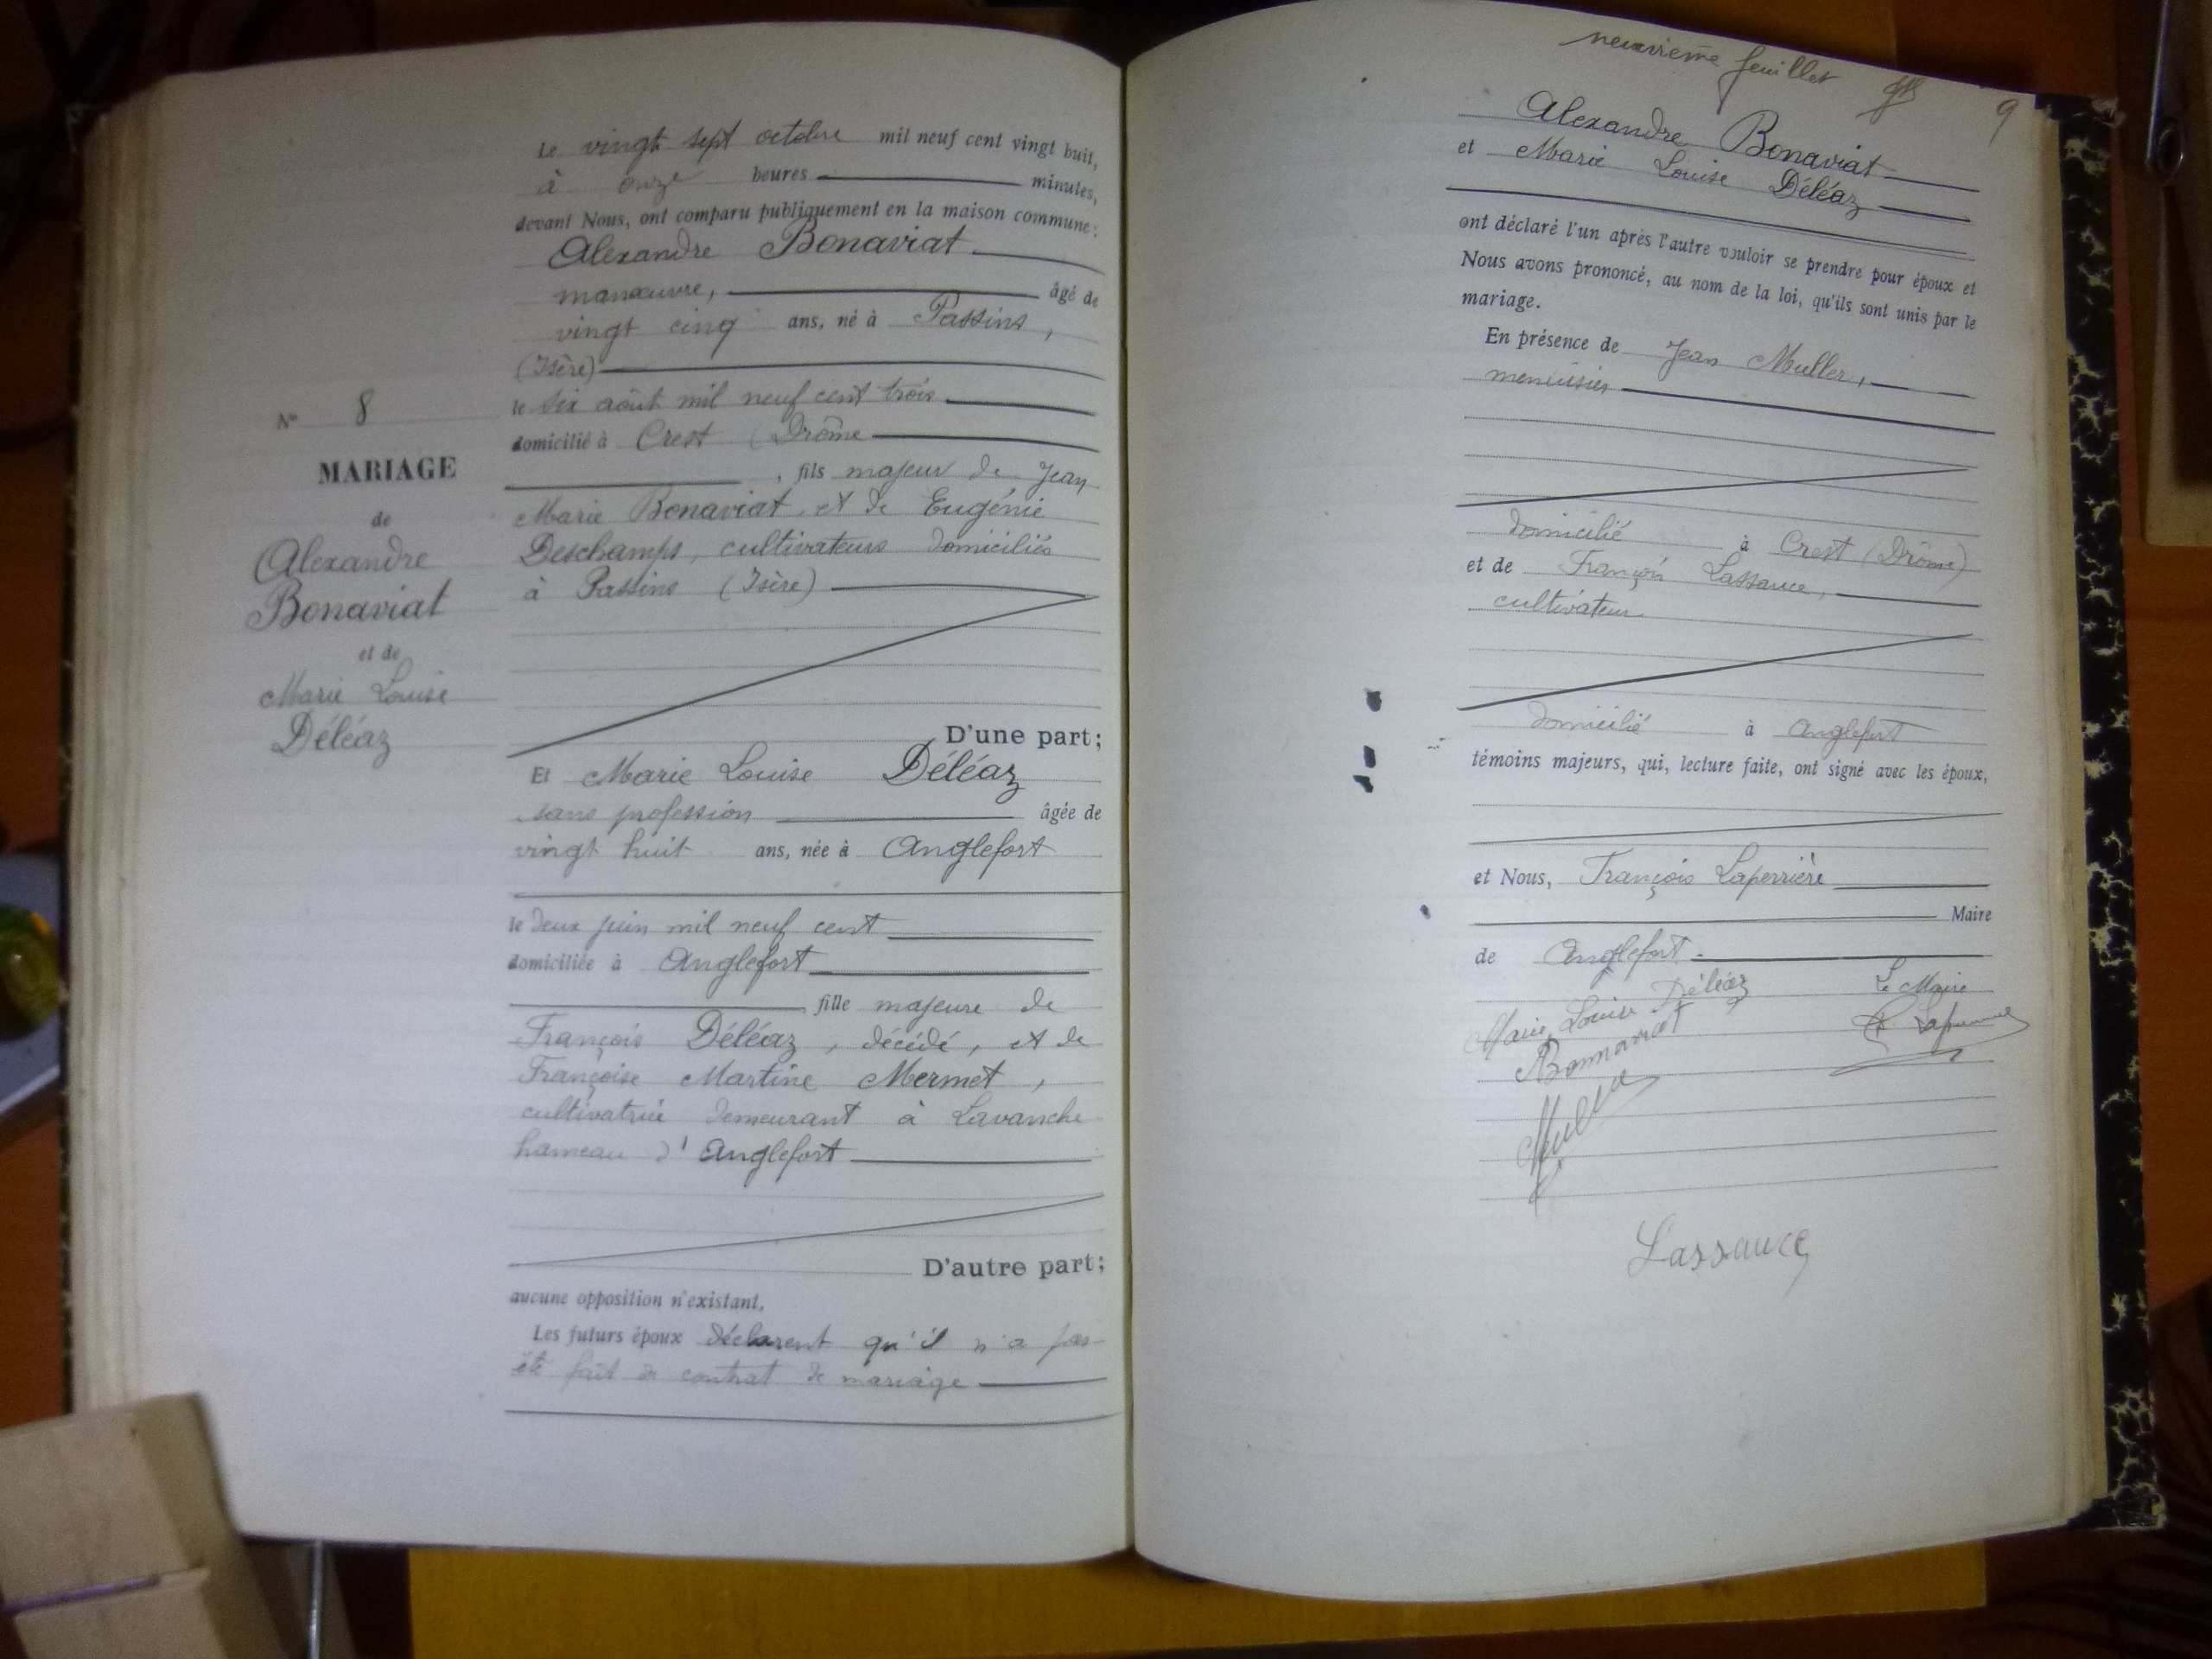 Le vingt sept octobre mil neuf cent vingt huit,
à onze heures minutes,
devant Nous, ont comparu publiquement en la maison commune:
Alexandre Bonaviat
manœuvre, âgé de
vingt cinq ans, né à Passins,
(Isère)
le six août mil neuf cent trois
domicilié à Crest (Drôme
, fils majeur de Jean
Marie Bonaviat et de Eugénie
Deschamps, cultivateurs domiciliés
à Passins (Isère)
D'une part;
Et Marie Louise Déléaz
sans profession âgée de
vingt huit ans, née à Anglefort
le deux juin mil neuf cent
domiciliée à Anglefort
fille majeure de
François Déléaz, décédé, et de
Françoise Martine Mermet,
cultivatrice demeurant à Lavanche
hameau d'Anglefort
D'autre part;
aucune opposition n'existant.
Les futurs époux déclarent qu'il n'a pas
été fait de contrat de mariage
No 8
MARIAGE
de
Alexandre
Bonaviat
et de
Marie Louise
Déléaz
neuvième feuillet 9
Alexandre Bonaviat
et Marie Louise Déléaz
ont déclaré l'un après l'autre vouloir se prendre pour époux et
Nous avons prononcé, au nom de la loi, qu'ils sont unis par le
mariage.
En présence de Jean Muller,
menuisier
domicilié à Crest (Drôme)
et de François Lassauce,
cultivateur
domicilié à Anglefort
témoins majeurs, qui, lecture faite, ont signé avec les époux,
et Nous, François Laperrière
Maire
de Anglefort.
Marie Louise Déléaz Le Maire
Bonnaviat
Muller
Lassauce